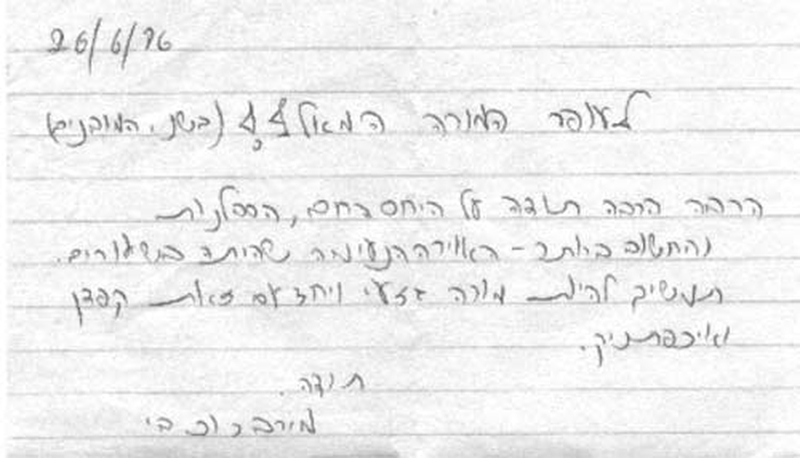 26/6/96
לעופר המורה המאלף (בשני המובנים)
הרבה הרבה תודה על היחס החם, הסבלנות
והחשוב ביותר - האוירה הנעימה שהיתה בשעורים.
תמשיך להיות מורה גזעי ויחד עם זאת קפדן
ואיכפתניק.
תודה.
מירב